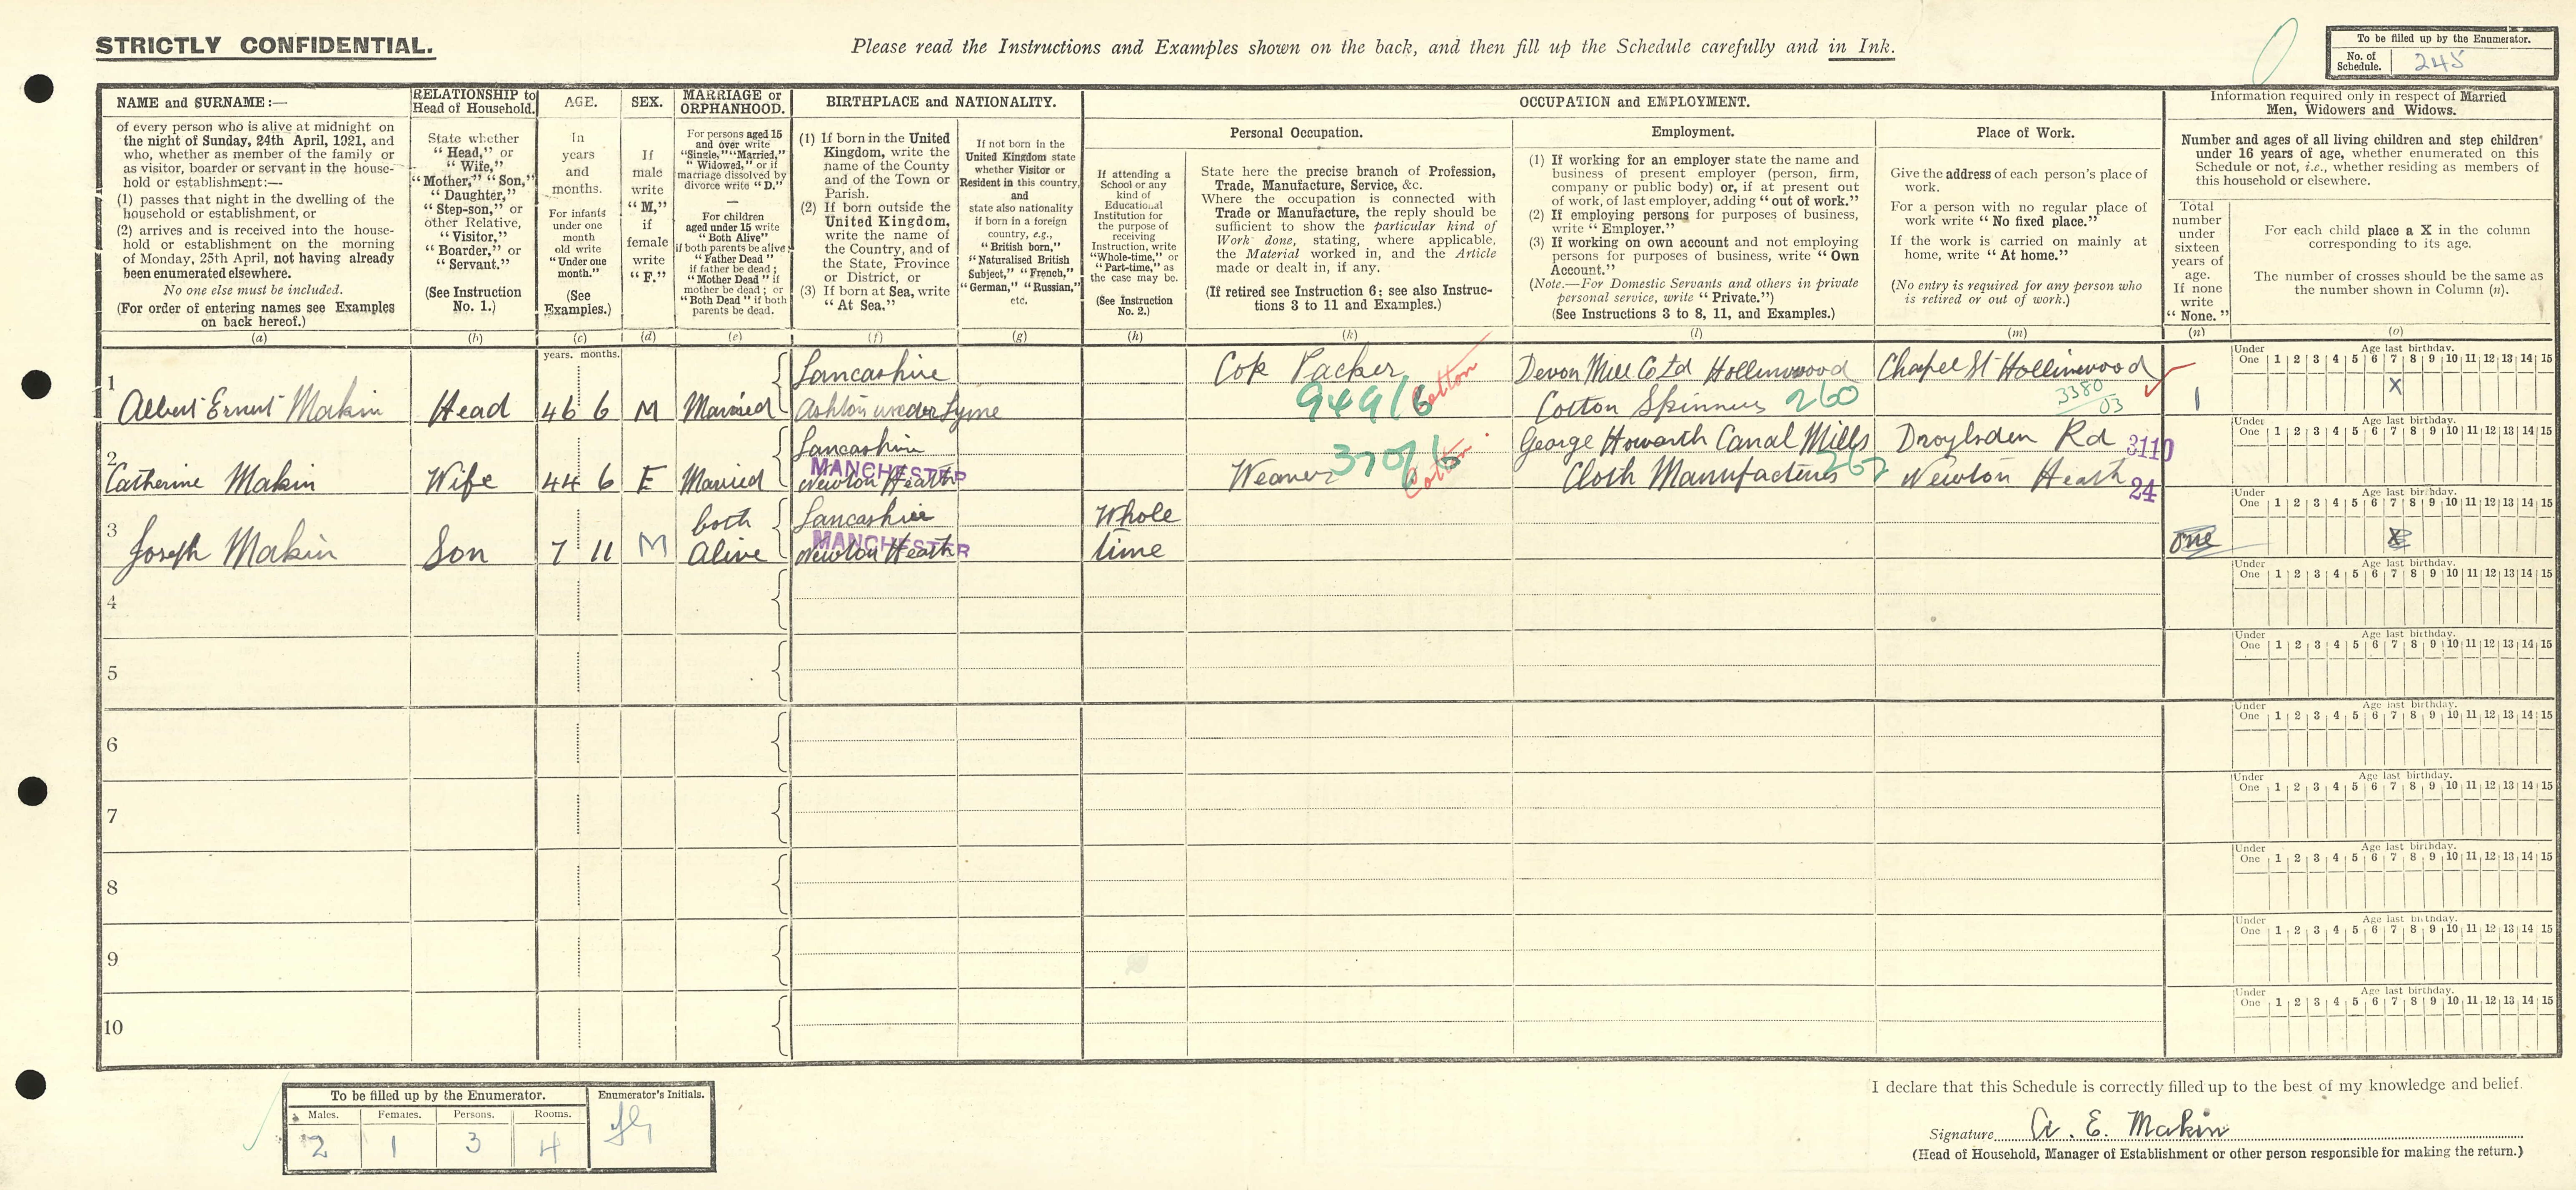 STRICTLY CONFIDENTIAL.
Please read the Instructions and Examples shown on the back, and then fill up the Schedule carefully and in Ink.
To be filled up by the Enumerator.
No. of Schedule. 245
NAME and SURNAME:—
of every person who is alive at midnight on
the night of Sunday, 24th April, 1921, and
who, whether as member of the family or
as visitor, boarder or servant in the house-
hold or establishment:—
(1) passes that night in the dwelling of the
household or establishment, or
(2) arrives and is received into the house-
hold or establishment on the morning
of Monday, 25th April, not having already
been enumerated elsewhere.
No one else must be included.
(For order of entering names see Examples
on back hereof.)
(a)
RELATIONSHIP to
Head of Household.
State whether
"Head," or
"Wife,"
"Mother," "Son,"
"Daughter,"
"Step-son," or
other Relative,
"Visitor,"
"Boarder," or
"Servant."
(See Instruction
No. 1.)
(b)
AGE.
In
years
and
months.
For infants
under one
month
old write
"Under one
month."
(See
Examples.)
(c)
SEX.
If
male
write
"M,"
if
female
write
"F."
(d)
MARRIAGE or
ORPHANHOOD.
For persons aged 15
and over write
"Single," "Married,"
"Widowed," or if
marriage dissolved by
divorce write "D."
—
For children
aged under 15 write
"Both Alive"
if both parents be alive;
"Father Dead"
if father be dead;
"Mother Dead" if
mother be dead; or
"Both Dead" if both
parents be dead.
(e)
BIRTHPLACE and NATIONALITY.
(1) If born in the United
Kingdom, write the
name of the County
and of the Town or
Parish.
(2) If born outside the
United Kingdom,
write the name of
the Country, and of
the State, Province
or District, or
(3) If born at Sea, write
"At Sea."
(f)
If not born in the
United Kingdom state
whether Visitor or
Resident in this country,
and
state also nationality
if born in a foreign
country, e.g.,
"British born,"
"Naturalised British
Subject," "French,"
"German," "Russian,"
etc.
(g)
OCCUPATION and EMPLOYMENT.
If attending a
School or any
kind of
Educational
Institution for
the purpose of
receiving
Instruction, write
"Whole-time," or
"Part-time," as
the case may be.
(See Instruction
No. 2.)
(h)
Personal Occupation.
State here the precise branch of Profession,
Trade, Manufacture, Service, &c.
Where the occupation is connected with
Trade or Manufacture, the reply should be
sufficient to show the particular kind of
Work done, stating, where applicable,
the Material worked in, and the Article
made or dealt in, if any.
(If retired see Instruction 6; see also Instruc-
tions 3 to 11 and Examples.)
(k)
Employment.
(1) If working for an employer state the name and
business of present employer (person, firm,
company or public body) or, if at present out
of work, of last employer, adding "out of work."
(2) If employing persons for purposes of business,
write "Employer."
(3) If working on own account and not employing
persons for purposes of business, write "Own
Account."
(Note.—For Domestic Servants and others in private
personal service, write "Private.")
(See Instructions 3 to 8, 11, and Examples.)
(l)
Place of Work.
Give the address of each person's place of
work.
For a person with no regular place of
work write "No fixed place."
If the work is carried on mainly at
home, write "At home."
(No entry is required for any person who
is retired or out of work.)
(m)
Information required only in respect of Married
Men, Widowers and Widows.
Number and ages of all living children and step children
under 16 years of age, whether enumerated on this
Schedule or not, i.e., whether residing as members of
this household or elsewhere.
Total
number
under
sixteen
years of
age.
If none
write
"None."
(n)
For each child place a X in the column
corresponding to its age.
The number of crosses should be the same as
the number shown in Column (n).
(o)
years. months.
Under One 1 2 3 4 5 6 7 8 9 10 11 12 13 14 15
Age last birthday.
1
Lancashire Cop Packer Cotton Devon Mill Co Ltd Hollinwood Chapel St Hollinwood X
Albert Ernest Makin Head 46 6 M Married Ashton under Lyne 949/6 Cotton Spinners 260 3380/03 1
Under One 1 2 3 4 5 6 7 8 9 10 11 12 13 14 15
Age last birthday.
2
Lancashire George Howarth Canal Mills Droylsden Rd 3110
MANCHESTER
Catherine Makin Wife 44 6 F Married Newton Heath Weaver 370/6 Cotton Cloth Manufacturers 262 Newton Heath 24
Under One 1 2 3 4 5 6 7 8 9 10 11 12 13 14 15
Age last birthday.
3
both Lancashire Whole
MANCHESTER
Joseph Makin Son 7 11 M Alive Newton Heath time One X
Under One 1 2 3 4 5 6 7 8 9 10 11 12 13 14 15
Age last birthday.
4
Under One 1 2 3 4 5 6 7 8 9 10 11 12 13 14 15
Age last birthday.
5
Under One 1 2 3 4 5 6 7 8 9 10 11 12 13 14 15
Age last birthday.
6
Under One 1 2 3 4 5 6 7 8 9 10 11 12 13 14 15
Age last birthday.
7
Under One 1 2 3 4 5 6 7 8 9 10 11 12 13 14 15
Age last birthday.
8
Under One 1 2 3 4 5 6 7 8 9 10 11 12 13 14 15
Age last birthday.
9
Under One 1 2 3 4 5 6 7 8 9 10 11 12 13 14 15
Age last birthday.
10
Under One 1 2 3 4 5 6 7 8 9 10 11 12 13 14 15
Age last birthday.
To be filled up by the Enumerator.
Males. Females. Persons. Rooms.
2 1 3 4
Enumerator's Initials.
I declare that this Schedule is correctly filled up to the best of my knowledge and belief.
Signature A. E. Makin
(Head of Household, Manager of Establishment or other person responsible for making the return.)